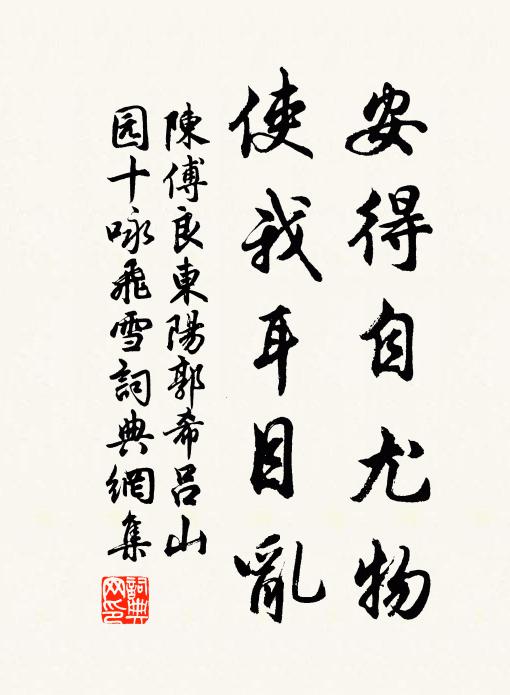 安得自尤物
使我耳目亂
陳傅良東陽郭希呂山
园十咏飛雪詞典網集
詞典网印